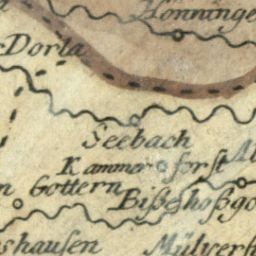 Hönninge
Dorla
Seebach
Kammer forst Al
n Gottern Bißehoßgo
shausen Mülverst